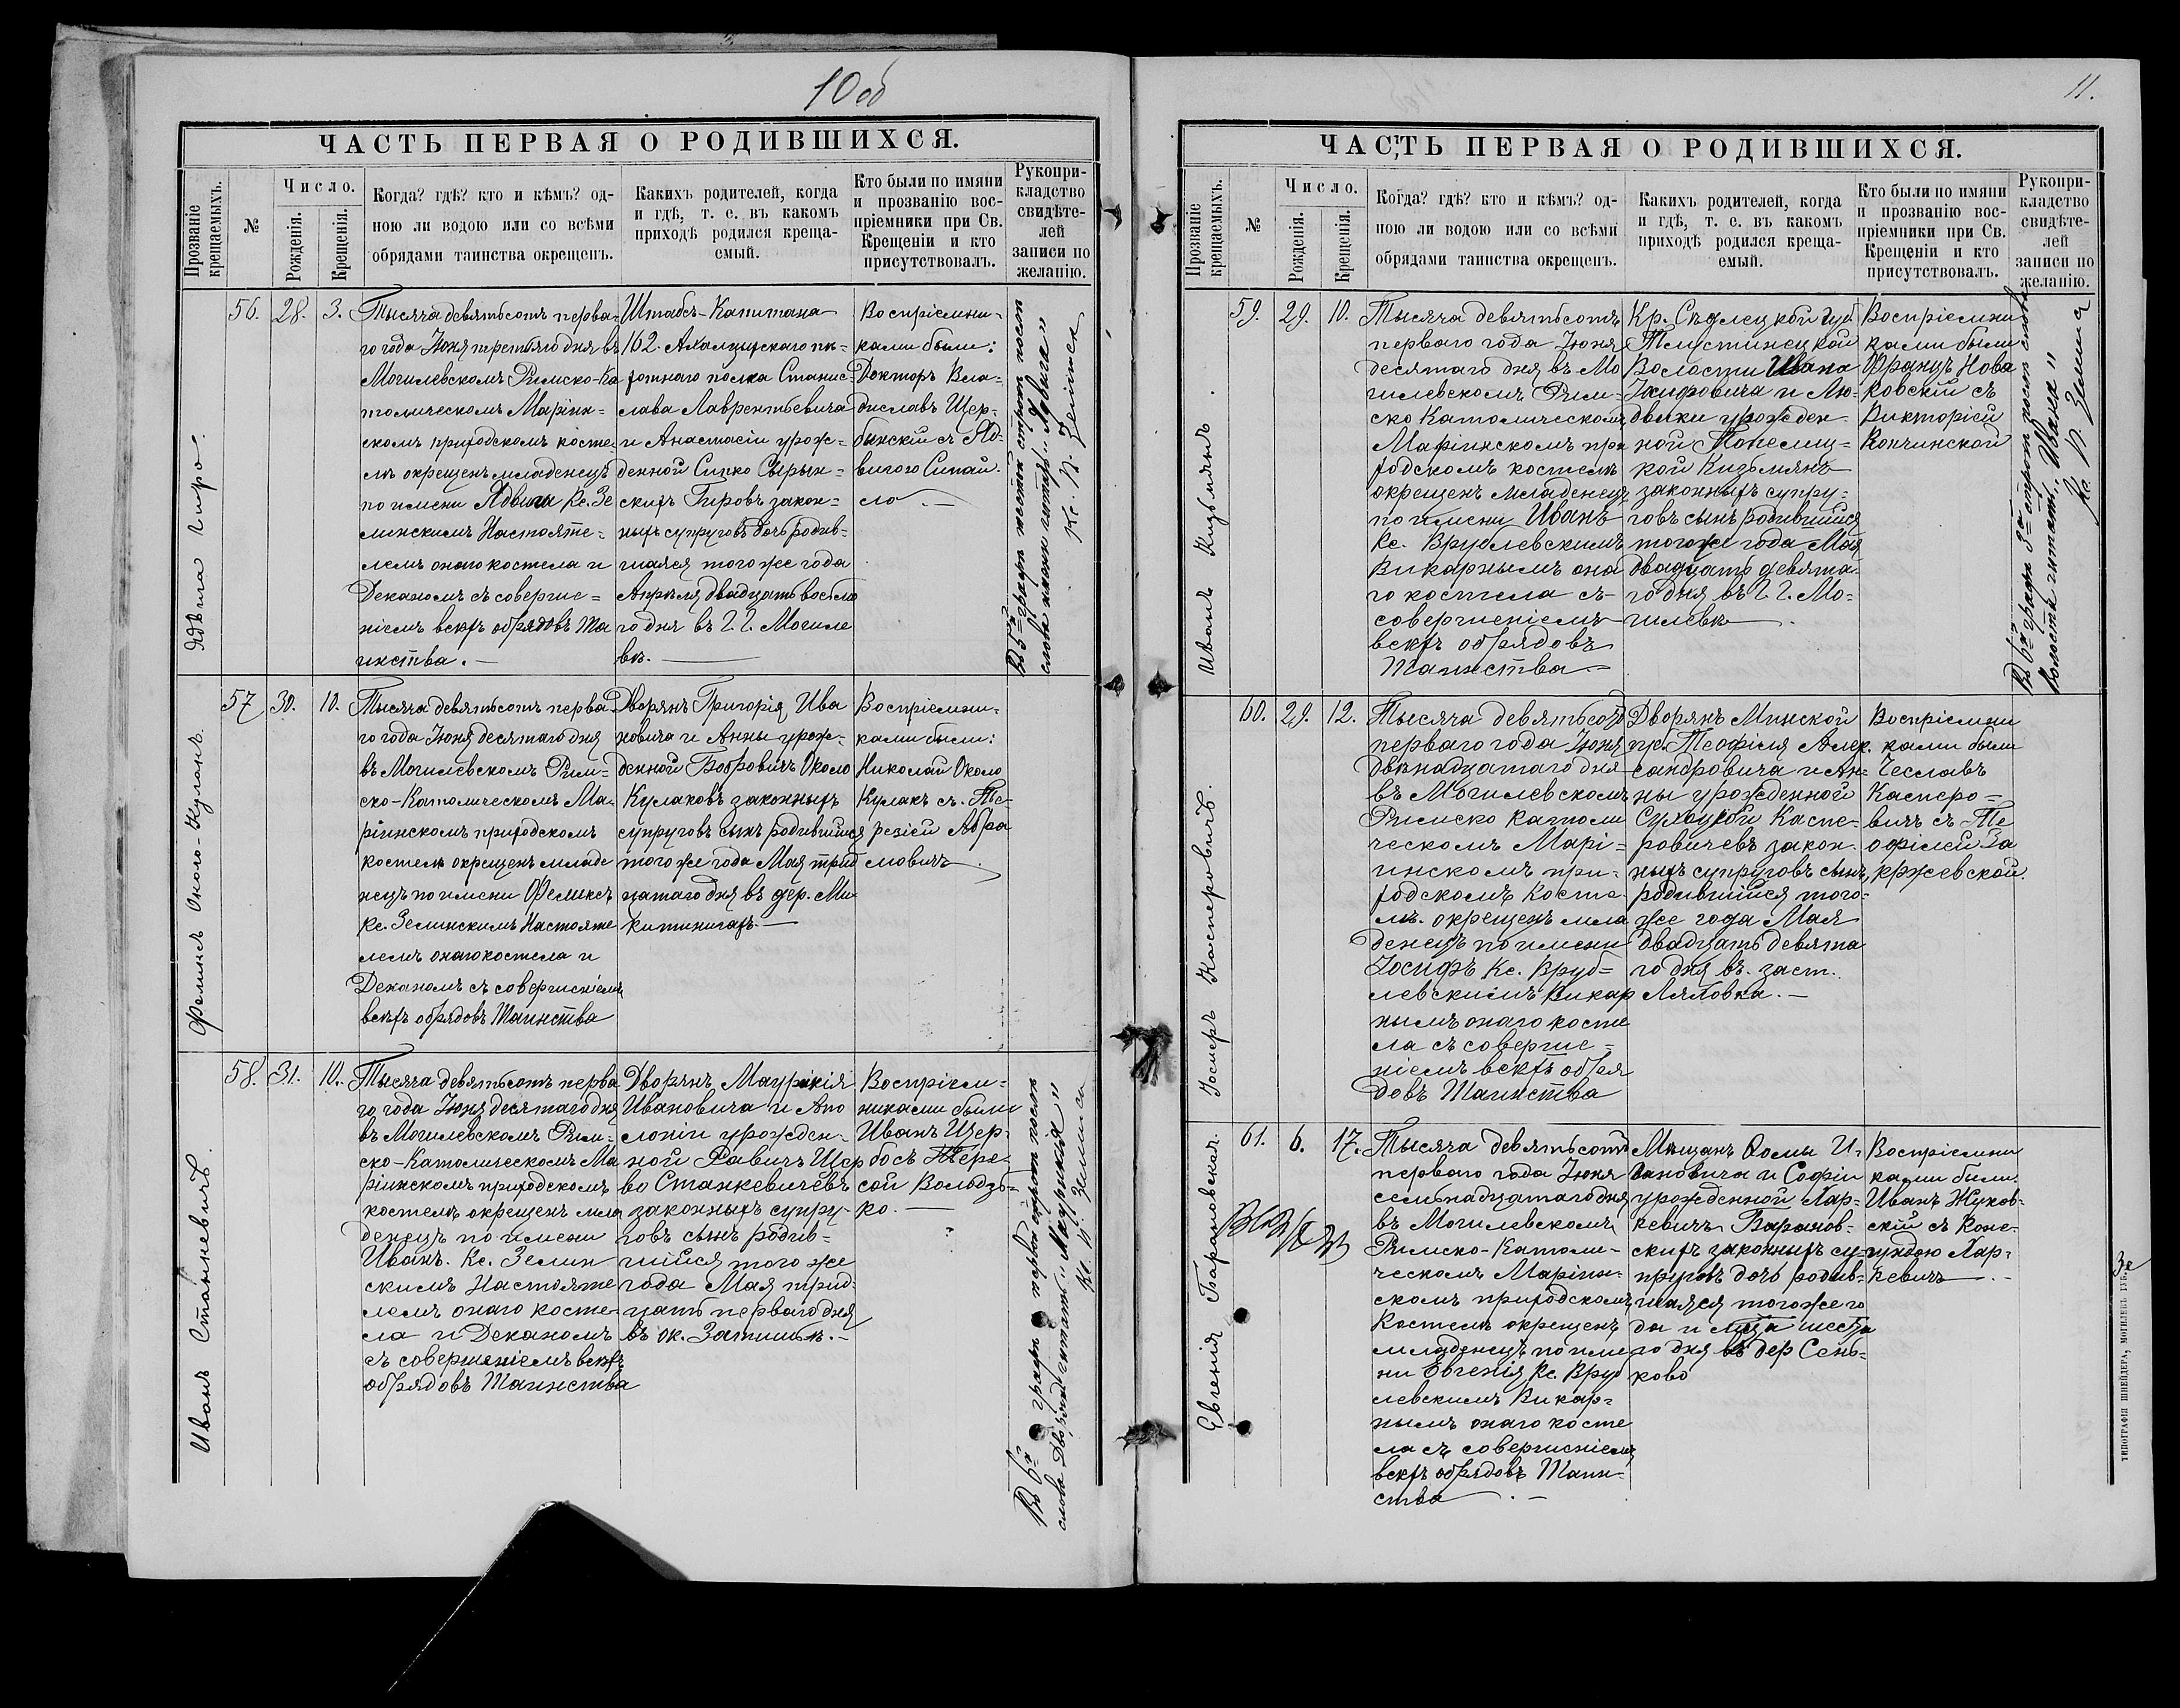 10 об
ЧАСТЬ ПЕРВАЯ О РОДИВШИХСЯ.
Прозваніе крещаемыхъ.
№
Число.
Рожденія.
Крещенія.
Когда? гдѣ? кто и кѣмъ? од-
ною ли водою или со всѣми
обрядами таинства окрещенъ.
Какихъ родителей, когда
и гдѣ, т. е. въ какомъ
приходѣ родился креща-
емый.
Кто были по имяни
и прозванію вос-
пріемники при Св.
Крещеніи и кто
присутствовалъ.
Рукопри-
кладство
свидѣте-
лей
записи по
желанію.
Ядвига Гиро.
56.
28.
3.
Тысяча девятьсотъ перва-
го года Іюня третьяго дня въ
Могилевскомъ Римско-Ка
толическомъ Маріин=
скомъ приходскомъ косте-
лѣ окрещенъ младенецъ
по имени Ядвига Кс. Зе
линскимъ Настояте=
лемъ онаго костела и
Деканомъ съ соверше=
ніемъ всѣхъ обрядовъ Та
инства. —
Штабсъ-Капитана
162. Ахалцыхскаго пѣ=
хотнаго полка Станис=
слава Лаврентьевича
и Анастасіи урож=
денной Сипко Сырын=
скихъ Гировъ закон=
ныхъ супруговъ дочь родив=
шаяся того же года
Апрѣля двадцать восьма
го дня въ Г. Г. Могиле
вѣ. —
Воспріемни-
ками были:
Докторъ Вла=
диславъ Щер-
бинскій съ Яд-
вигою Сипай-
ло. —
Феликсъ Около-Кулакъ.
57
30.
10.
Тысяча девятьсотъ перва-
го года Іюня десятаго дня
въ Могилевскомъ Рим=
ско-Католическомъ Ма-
ріинскомъ приходскомъ
костелѣ окрещенъ младе
нецъ по имени Феликсъ
Кс. Зелинскимъ Настояте
лемъ онаго костела и
Деканомъ съ совершеніемъ
всѣхъ обрядовъ Таинства
Дворянъ Григорія Ива
новича и Анны урож-
денной Бобровичъ Около
Кулаковъ законныхъ
супруговъ сынъ родившійся
того же года Мая трид
цатаго дня въ дер. Ми
китиничахъ. —
Воспріемни-
ками были:
Николай Около
Кулакъ съ Те-
резіей Абра
мовичъ.
Иванъ Станкевичъ.
58.
31.
10.
Тысяча девятьсотъ перва
го года Іюня десятаго дня
въ Могилевскомъ Рим-
ско-Католическомъ Ма
ріинскомъ приходскомъ
костелѣ окрещенъ мла
денецъ по имени
Иванъ. Кс. Зелин
скимъ Настояте
лемъ онаго косте-
ла и Деканомъ
съ совершеніемъ всѣхъ
обрядовъ Таинства
Дворянъ Маурикія
Ивановича и Апо
лоніи урожден-
ной Равичъ Щер
бо Станкевичевъ
законныхъ супру-
говъ сынъ родив=
шійся того же
года Мая трид-
цать перваго дня
въ ок. Затишьѣ. —
Воспріем-
никами были
Иванъ Щер-
босъ Тере-
сой Володзь-
ко. —
11.
ЧАСТЬ ПЕРВАЯ О РОДИВШИХСЯ.
Прозваніе крещаемыхъ.
№
Число.
Рожденія.
Крещенія.
Когда? гдѣ? кто и кѣмъ? од-
ною ли водою или со всѣми
обрядами таинства окрещенъ.
Какихъ родителей, когда
и гдѣ, т. е. въ какомъ
приходѣ родился креща-
емый.
Кто были по имяни
и прозванію вос-
пріемники при Св.
Крещеніи и кто
присутствовалъ.
Рукопри-
кладство
свидѣте-
лей
записи по
желанію.
Иванъ Кузьмянъ.
59.
29.
10.
Тысяча девятьсотъ
перваго года Іюня
десятаго дня въ Мо
гилевскомъ Рим-
ско Католическомъ
Маріинскомъ при
ходскомъ костелѣ
окрещенъ младенецъ
по имени Иванъ
Кс. Врублевскимъ
Викарнымъ она
го костела съ
совершеніемъ
всѣхъ обрядовъ
Таинства —
Кр. Сѣдлецкой губ.
Тлустинецкой
Волости Ивана
Іосифовича и Лю-
двики урожден-
ной
кой Кузьмянъ
законныхъ супру-
говъ сынъ родившійся
того же года Мая
двадцать девята-
го дня въ Г. Г. Мо=
гилевѣ.
Воспріемни
ками были
Францъ Нова
ковскій съ
Викторіей
Кончинской
Іосифъ Касперовичъ.
60.
29.
12.
Тысяча девятьсотъ
перваго года Іюня
двѣнадцатаго дня
въ Могилевскомъ
Римско Католи
ческомъ Марі=
инскомъ при-
ходскомъ косте-
лѣ окрещенъ мла
денецъ по имени
Іосифъ Кс. Вруб=
левскимъ Викар
нымъ онаго косте
ла съ соверше=
ніемъ всѣхъ обря
довъ Таинства
Дворянъ Минской
губ. Теофиля Алек.
сандровича и Ан-
ны урожденной
Сухоцкой Каспе-
ровичевъ закон.
ныхъ супруговъ сынъ,
родившійся того-
же года Мая
двадцать девята
го дня въ заст.
Ляховка. —
Воспріемни
ками были
Чеславъ
Касперо=
вичъ съ Те
офилей За
кржевской.
Евгенія Барановская.
61.
6.
17.
Тысяча девятьсотъ
перваго года Іюня
семьнадцатаго дня
въ Могилевскомъ
Римско-Католи-
ческомъ Маріин-
скомъ приходскомъ
костелѣ окрещенъ
младенецъ по име
ни Евгенія Кс. Вруб
левскимъ Викар-
нымъ онаго косте
ла съ совершеніемъ
всѣхъ обрядовъ Таин-
ства —
Мѣщанъ Фомы И-
вановича и Софіи
урожденной Лар-
кевичъ Баранов-
скихъ законныхъ су-
пруговъ дочь родив-
шаяся того же го
да и мѣсяца шеста
го дня въ дер Сень-
ково
Воспріемни
ками были
Иванъ Жуков-
скій съ Коне-
гундою Лар-
кевичъ. —
ТИПОГРАФІЯ ШНЕЙДЕРА, МОГИЛЕВЪ ГУБ.